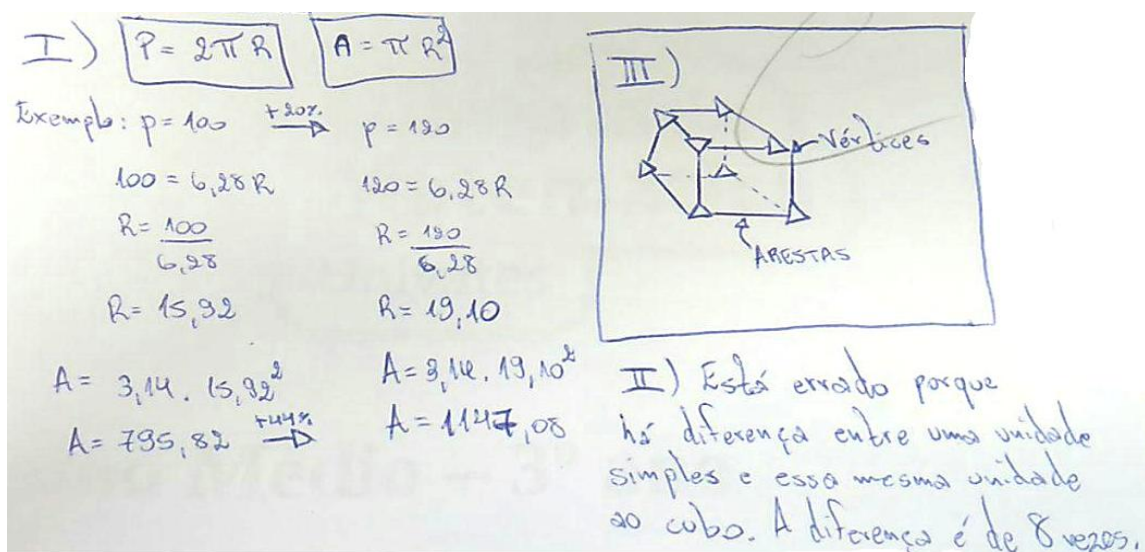 I) P = 2πR A = πR²
Exemplo: p = 100 +20% p = 120
100 = 6,28R 120 = 6,28R
R = 100/6,28 R = 120/6,28
R = 15,92 R = 19,10
A = 3,14 . 15,92² A = 3,14 . 19,10²
A = 795,82 +44% A = 1147,08
III)
Vértices
ARESTAS
II) Está errado porque
há diferença entre uma unidade
simples e essa mesma unidade
ao cubo. A diferença é de 8 vezes.